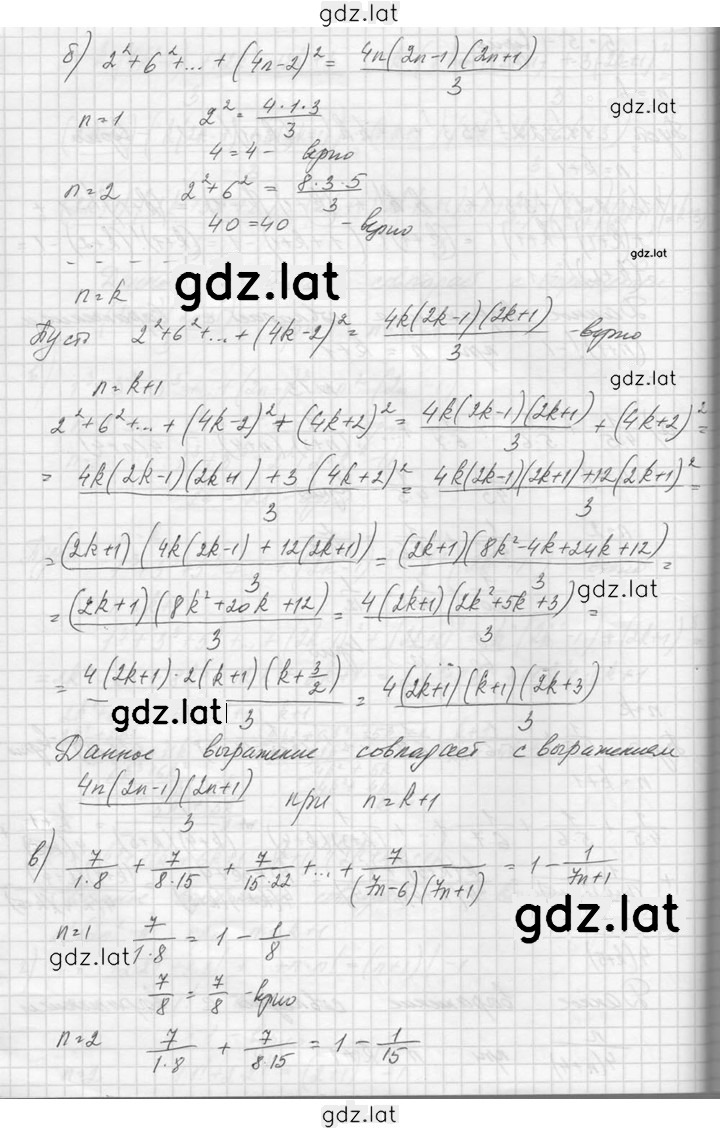 gdz.lat
б) 2²+6²+...+(4n-2)² = 4n(2n-1)(2n+1)/3
gdz.lat
n=1 2² = 4·1·3/3
4=4 - верно
n=2 2²+6² = 8·3·5/3
40=40 - верно
gdz.lat
- - - - -
n=k gdz.lat
Пусть 2²+6²+...+(4k-2)² = 4k(2k-1)(2k+1)/3 - верно
gdz.lat
n=k+1
2²+6²+...+(4k-2)²+(4k+2)² = 4k(2k-1)(2k+1)/3 + (4k+2)² =
= 4k(2k-1)(2k+1)+3(4k+2)²/3 = 4k(2k-1)(2k+1)+12(2k+1)²/3 =
= (2k+1)(4k(2k-1)+12(2k+1))/3 = (2k+1)(8k²-4k+24k+12)/3 =
gdz.lat
= (2k+1)(8k²+20k+12)/3 = 4(2k+1)(2k²+5k+3)/3 =
= 4(2k+1)·2(k+1)(k+3/2)/3 = 4(2k+1)(k+1)(2k+3)/3
gdz.lat
Данное выражение совпадает с выражением
4n(2n-1)(2n+1)/3 при n=k+1
в) 7/1·8 + 7/8·15 + 7/15·22 +...+ 7/(7n-6)(7n+1) = 1 - 1/7n+1
gdz.lat
n=1 7/1·8 = 1 - 1/8
gdz.lat
7/8 = 7/8 - верно
n=2 7/1·8 + 7/8·15 = 1 - 1/15
gdz.lat